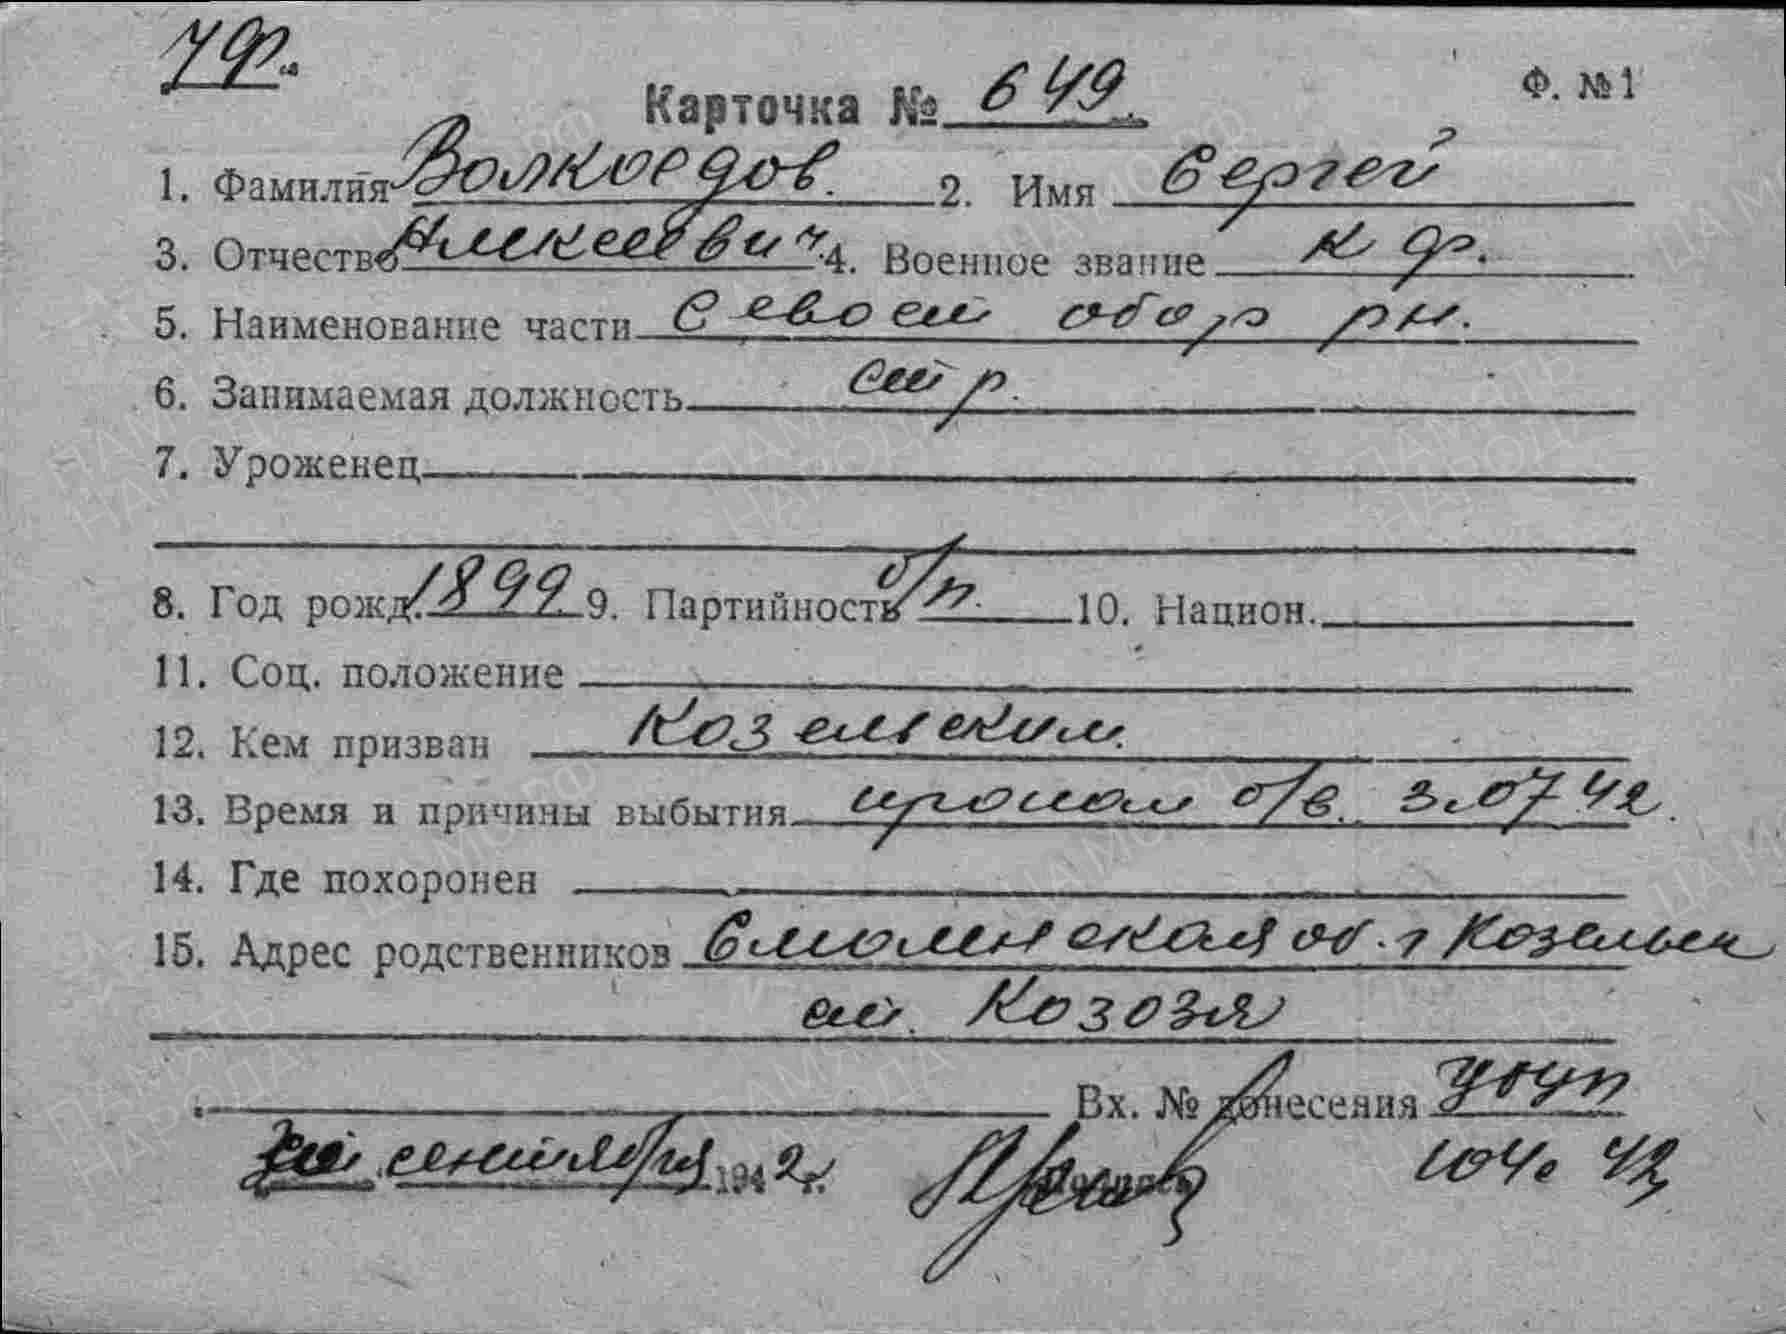 ЧФ.
Карточка № 649. Ф. №1
1. Фамилия Волкоедов. 2. Имя Сергей
3. Отчество Алексеевич. 4. Военное звание к ф.
5. Наименование части Севост обор рн.
6. Занимаемая должность стр.
7. Уроженец
8. Год рожд. 1899 9. Партийность б/п. 10. Национ.
11. Соц. положение
12. Кем призван Козельским.
13. Время и причины выбытия пропал б/в. 3.07 42.
14. Где похоронен
15. Адрес родственников Смоленская об. г Козельск
ст. Козозя
Вх. № донесения
сентября 1942 г.
104с 42